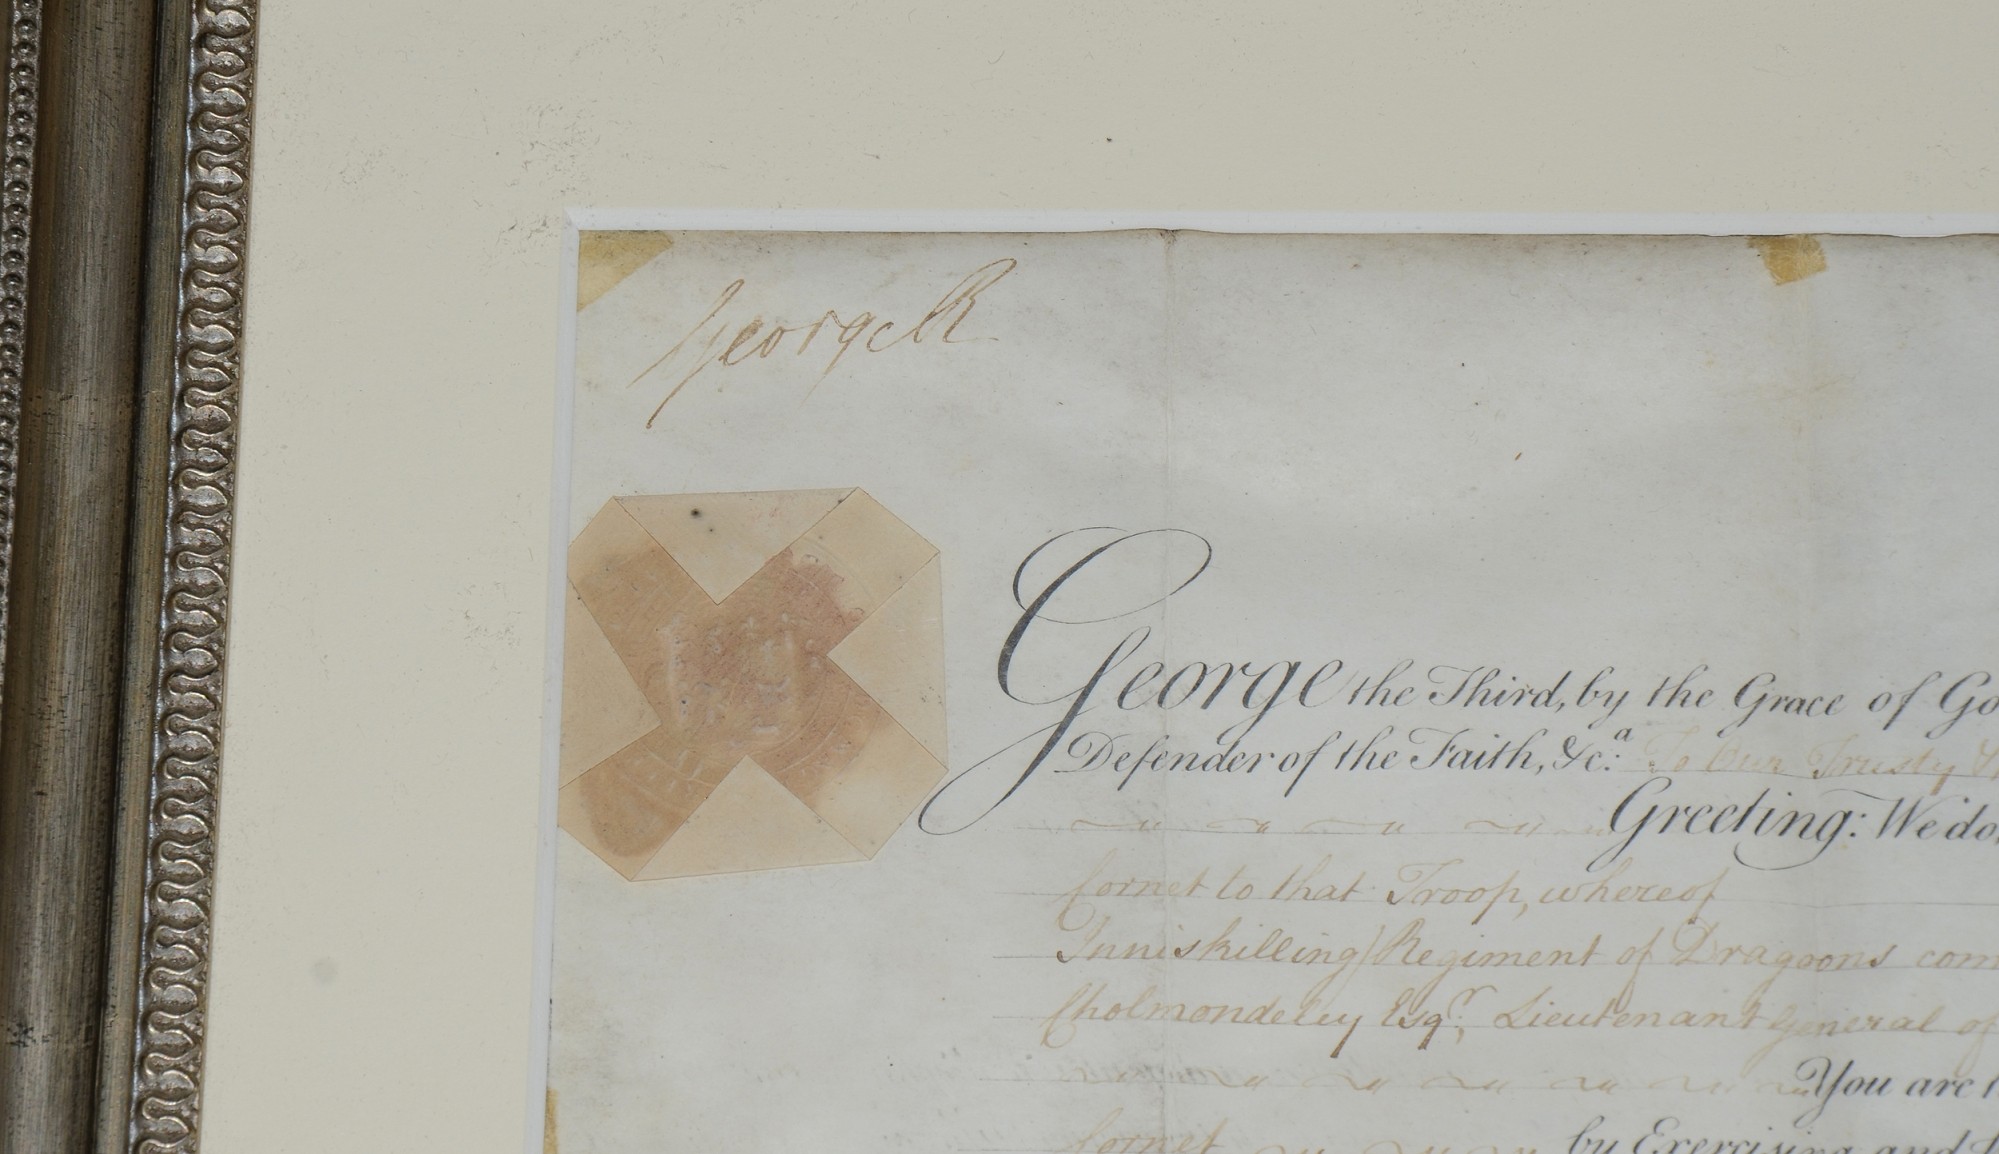 George R
George the Third, by the Grace of Go
Defender of the Faith, &c.ª To Our Trusty &
Greeting: We do,
Cornet to that Troop, whereof
Inniskilling) Regiment of Dragoons com
Cholmondeley Esqr., Lieutenant General of
You are t
Cornet by Exercising and